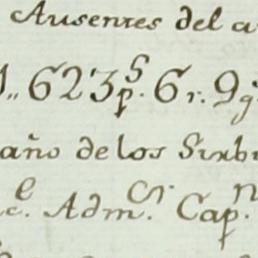 Ausentes del a
1,,623p.s 6r. 9g
año de los Sub
c.e Adm.or Cap.n